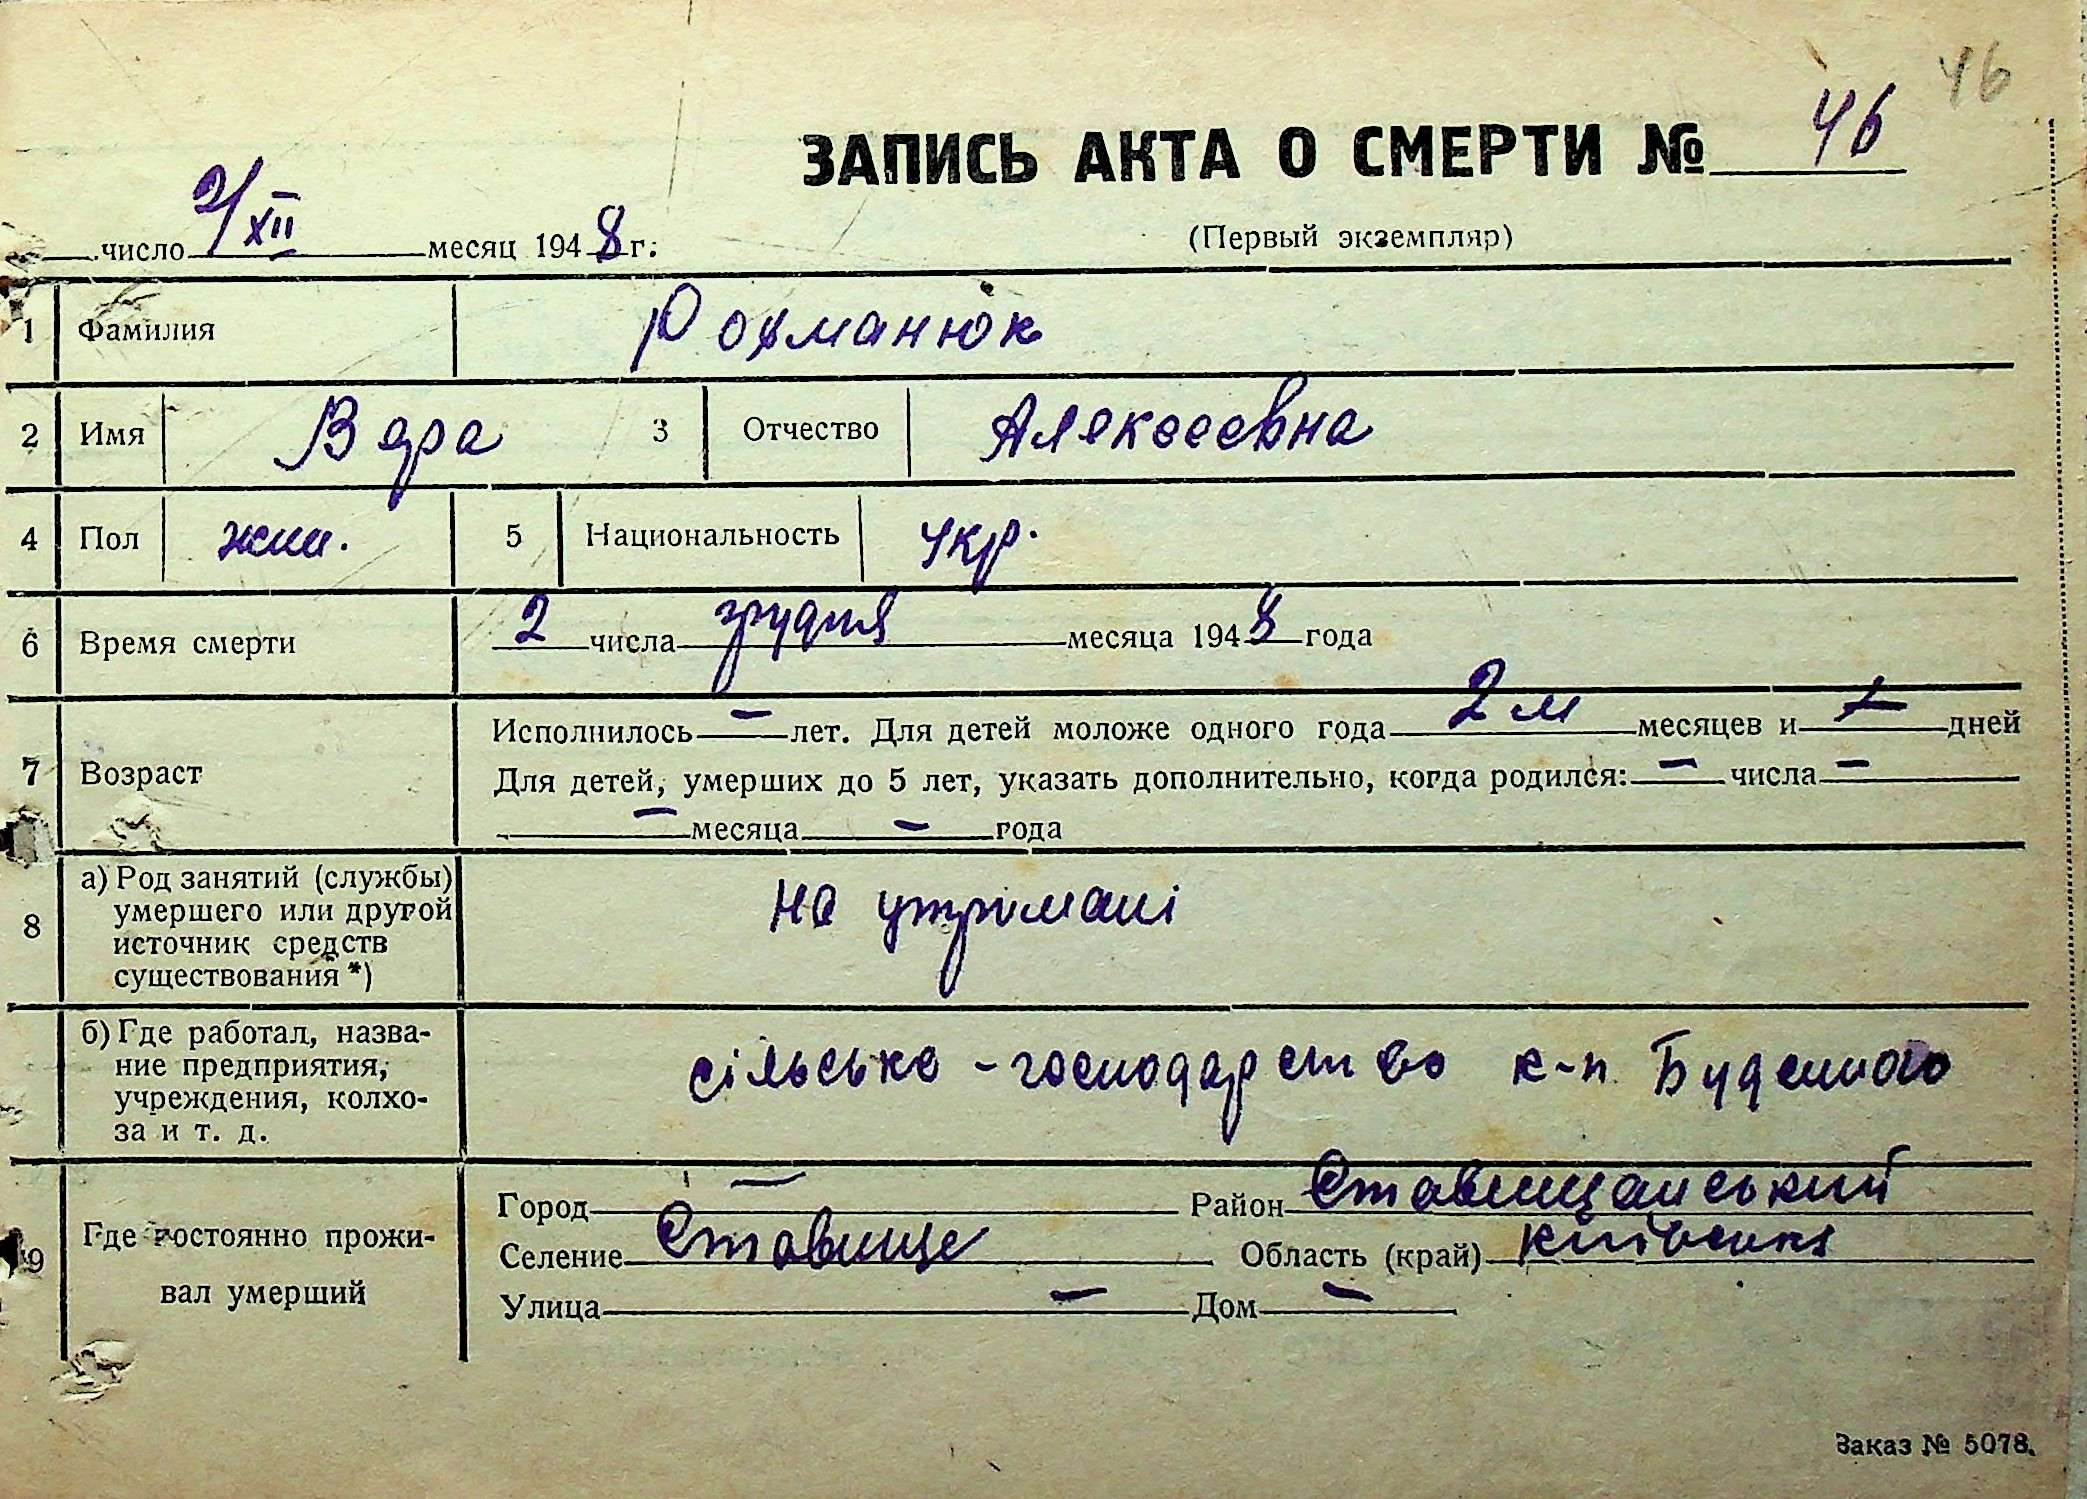 46
ЗАПИСЬ АКТА О СМЕРТИ № 46
(Первый экземпляр)
число 2/XII месяц 1948 г.
1 Фамилия Рохманюк
2 Имя Вера 3 Отчество Алексеевна
4 Пол жин. 5 Национальность укр.
6 Время смерти 2 числа грудня месяца 1948 года
7 Возраст
Исполнилось — лет. Для детей моложе одного года 2 м месяцев и — дней
Для детей, умерших до 5 лет, указать дополнительно, когда родился: — числа —
— месяца — года
8 а) Род занятий (службы)
умершего или другой
источник средств
существования *)
на утримані
б) Где работал, назва-
ние предприятия,
учреждения, колхо-
за и т. д.
сільсько - господарство к-п Буденного
9 Где постоянно прожи-
вал умерший
Город — Район Ставищанський
Селение Ставище Область (край) Київська
Улица — Дом —
Заказ № 5078.